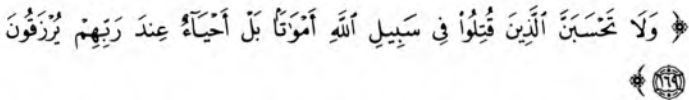 ﴿ وَلَا تَحْسَبَنَّ ٱلَّذِينَ قُتِلُوا۟ فِى سَبِيلِ ٱللَّهِ أَمْوَٰتًۢا بَلْ أَحْيَآءٌ عِندَ رَبِّهِمْ يُرْزَقُونَ
١٦٩ ﴾